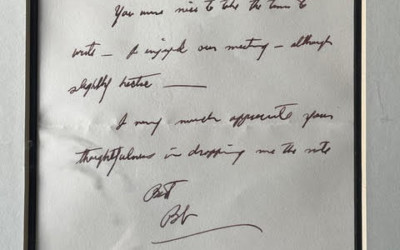 You were nice to take the time to
write — I enjoyed our meeting — although
slightly hectic —
I very much appreciate your
thoughtfulness in dropping me the note
Best
Bob